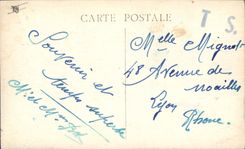 CARTE POSTALE
T S.
Souvenir et
temps superbe
Melle Mignot
48 Avenue de
noailles
Lyon
Rhone.